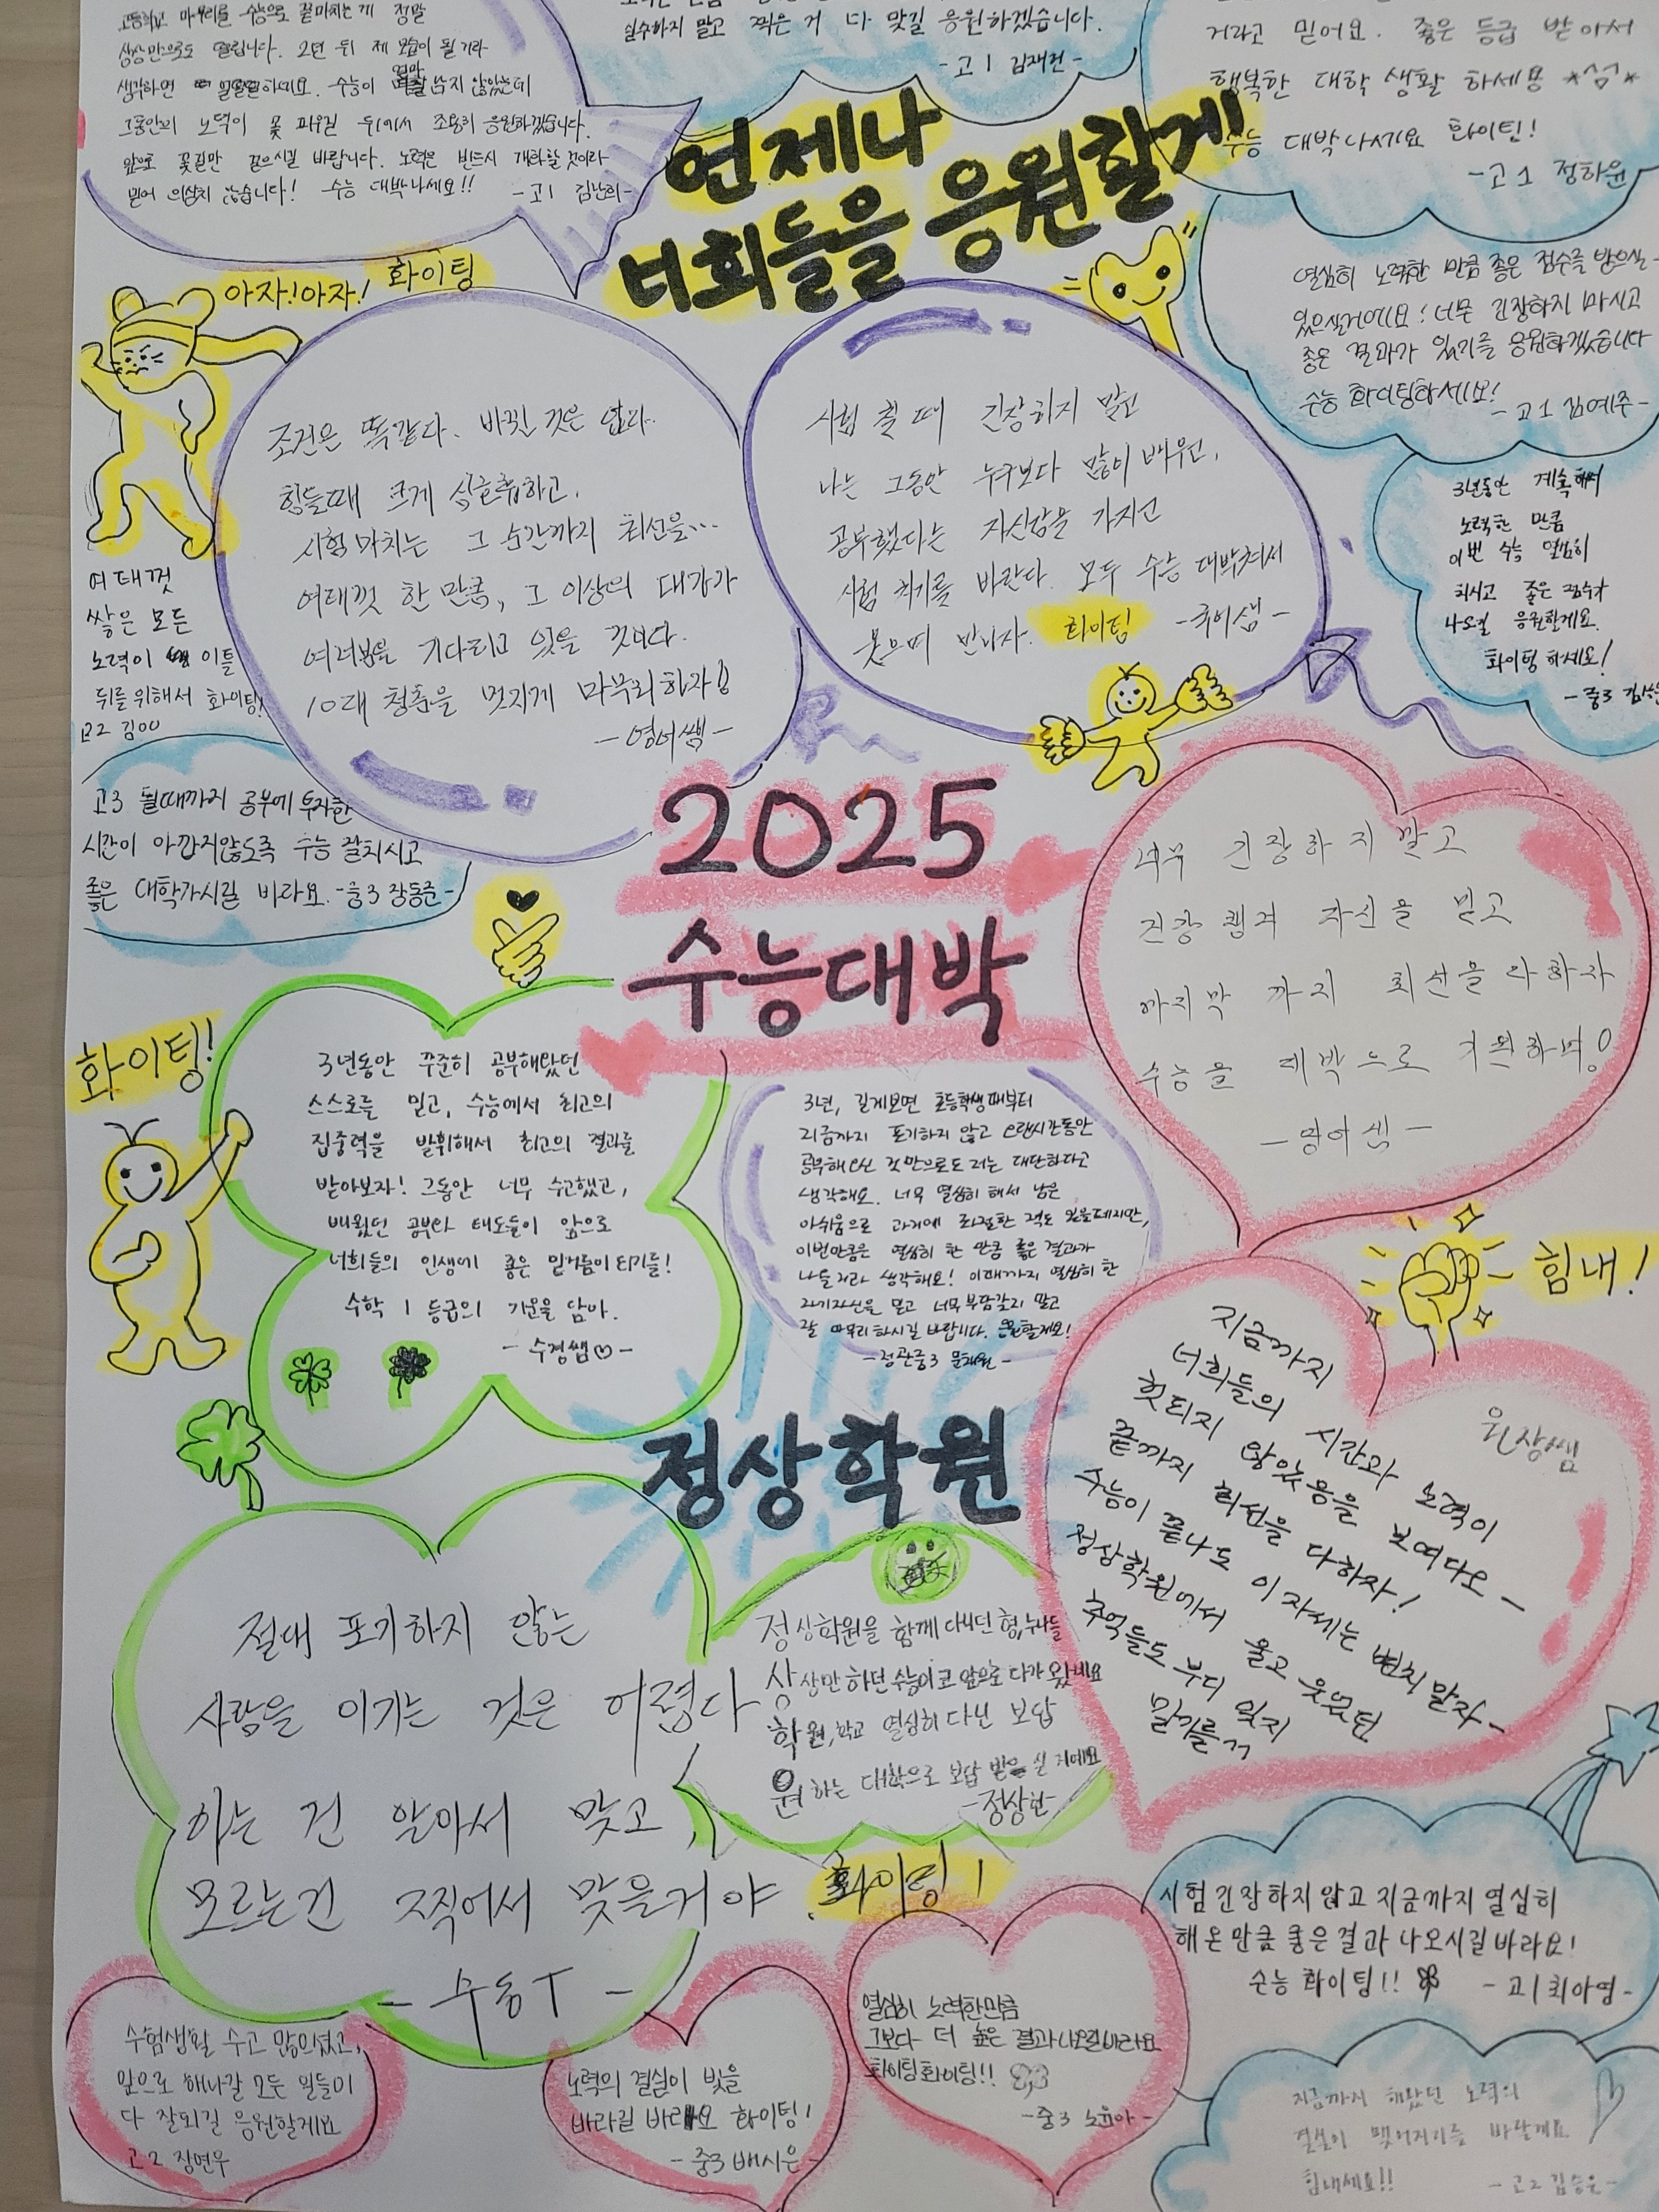 고등학교 마무리를 수능으로 끝마치는게 정말
상상만으로도 떨립니다. 2년 뒤 제 모습이 될 거라
생각하면 하네요. 수능이 얼마 남지 않았는데
그동안의 노력이 꽃 피우길 뒤에서 조용히 응원하겠습니다.
앞으로 꽃길만 걸으시길 바랍니다. 노력은 반드시 개화할 것이라
믿어 의심치 않습니다! 수능 대박나세요!!
-고1
실수하지 말고 찍은 거 다 맞길 응원하겠습니다.
-고1 김재헌-
거라고 믿어요. 좋은 등급 받아서
행복한 대학 생활 하세용
수능 대박나세요 화이팅!
-고1 정하윤
언제나
너희들을 응원할게!
아자!아자! 화이팅
열심히 노력한 만큼 좋은 점수를 받으실-
있으실거에요! 너무 긴장하지 마시고
좋은 결과가 있기를 응원하겠습니다
수능 화이팅하세요!
-고1 김예주-
조건은 똑같다. 바뀐 것은 없다.
힘들때 크게 심호흡하고,
시험 마치는 그 순간까지 최선을...
여태껏 한 만큼, 그 이상의 대가가
여러분을 기다리고 있을 것이다.
10대 청춘을 멋지게 마무리하자!
-영어쌤-
시험 칠 때 긴장하지 말고
나는 그동안 누구보다 많이 배우고,
공부했다는 자신감을 가지고
시험 치기를 바란다. 모두 수능 대박쳐서
웃으며 만나자. 화이팅 -국어샘-
3년동안 계속해서
노력한 만큼
이번 수능 열심히
치시고 좋은 점수가
나오길 응원할게요.
화이팅 하세요!
-중3
여태껏
쌓은 모든
노력이 이틀
뒤를 위해서 화이팅!
고2 김00
고3 될때까지 공부에 투자한
시간이 아깝지않도록 수능 잘치시고
좋은 대학가시길 바라요. -중3 장동준-
2025
수능대박
너무 긴장하지 말고
긴장 챙겨 자신을 믿고
마지막 까지 최선을 다하자
수능을 대박으로 기원하며!
-영어쌤-
화이팅!
3년동안 꾸준히 공부해왔던
스스로를 믿고, 수능에서 최고의
집중력을 발휘해서 최고의 결과를
받아보자! 그동안 너무 수고했고,
배웠던 공부와 태도들이 앞으로
너희들의 인생에 좋은 밑거름이 되기를!
수학 1등급의 기운을 담아.
- 수경쌤♡-
3년, 길게보면 초등학생때부터
지금까지 포기하지 않고 오랜시간동안
공부해오신 것 만으로도 저는 대단하다고
생각해요. 너무 열심히 해서 남은
아쉬움으로 과거에 좌절한 적도 있을테지만,
이번만큼은 열심히 한 만큼 좋은 결과가
나올거라 생각해요! 이때까지 열심히 한
자기자신을 믿고 너무 부담갖지 말고
잘 마무리하시길 바랍니다. 응원할게요!
-정관중3 문채원-
힘내!
지금까지
너희들의 시간과 노력이
헛되지 않았음을 보여다오-
끝까지 최선을 다하자!
수능이 끝나도 이 자세는 변치 말자-
정상학원에서 울고 웃었던
추억들도 부디 잊지
말기를
원장쌤
정상학원
절대 포기하지 않는
사람을 이기는 것은 어렵다
아는 건 알아서 맞고,
모르는건 찍어서 맞을거야. 화이팅!
- 무동T -
정상학원을 함께 다니던 형,누나들
상상만 하던 수능이 코 앞으로 다가왔네요
학원,학교 열심히 다닌 보답
원하는 대학으로 보답 받으실 거에요
-정상헌-
시험긴장하지않고 지금까지 열심히
해온만큼 좋은결과 나오시길바라요!
수능 화이팅!! -고1 최아영-
수험생활 수고 많으셨고,
앞으로 해나갈 모든 일들이
다 잘되길 응원할게요
고2 장연우
노력의 결실이 빛을
바라길 바라요 화이팅!
-중3 배시은-
열심히 노력한만큼
그보다 더 높은 결과나오길바라요
화이팅화이팅!!
-중3 노윤아-
지금까지 해왔던 노력의
결실이 맺어지기를 바랄게요
힘내세요!!
-고2 김승은-